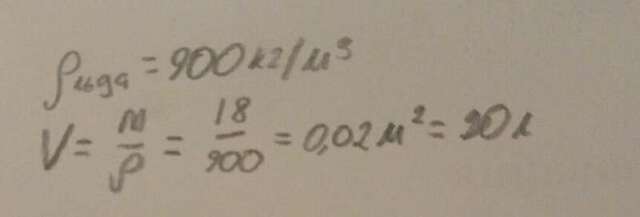 ρльда = 900 кг/м³
V = m/ρ = 18/900 = 0,02 м² = 20 л